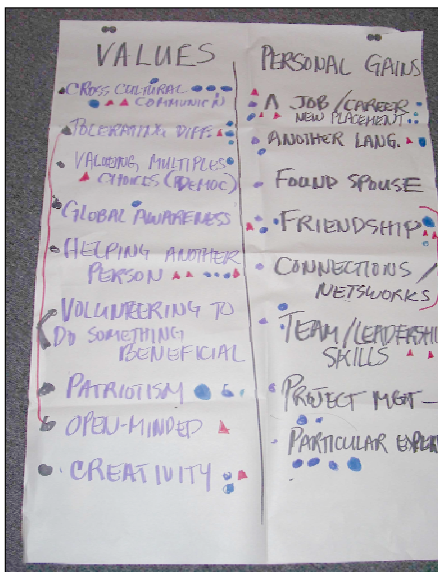 VALUES
CROSS CULTURAL
COMMUNICN
TOLERATING DIFF.
VALUEING, MULTIPLES
CHOICES (DEMOC)
GLOBAL AWARENESS
HELPING ANOTHER
PERSON
VOLUNTEERING TO
DO SOMETHING
BENEFICIAL
PATRIOTISM
OPEN-MINDED
CREATIVITY
PERSONAL GAINS
JOB/CAREER
NEW PLACEMENT
ANOTHER LANG.
FOUND SPOUSE
FRIENDSHIP
CONNECTIONS/
NETSWORKS
TEAM/LEADERSHI
SKILLS
PROJECT MGT-
PARTICULAR